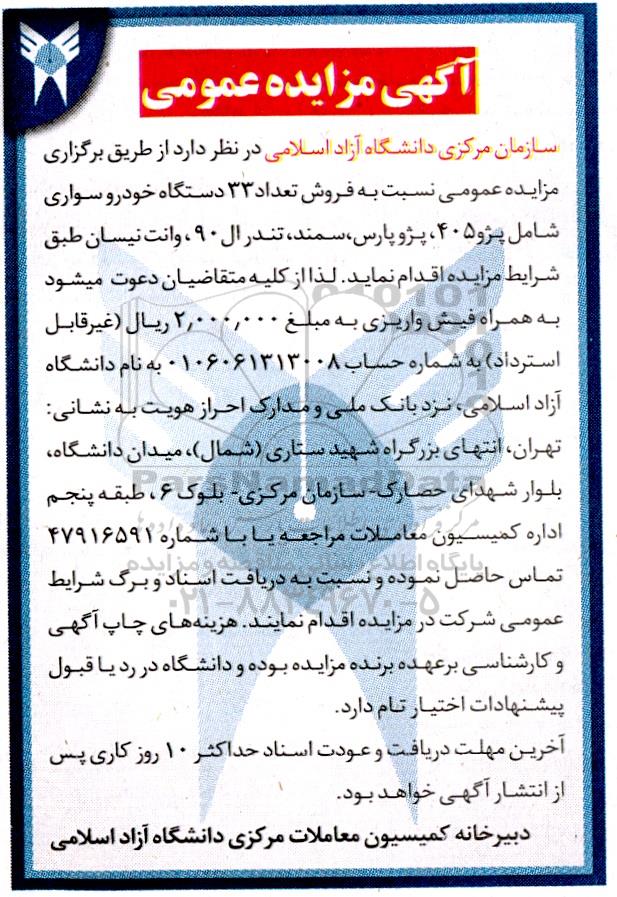 آگهی مزایده عمومی
سازمان مرکزی دانشگاه آزاد اسلامی در نظر دارد از طریق برگزاری
مزایده عمومی نسبت به فروش تعداد ۳۳ دستگاه خودرو سواری
شامل پژو ۴۰۵، پژو پارس، سمند، تندر ال ۹۰، وانت نیسان طبق
شرایط مزایده اقدام نماید. لذا از کلیه متقاضیان دعوت میشود
به همراه فیش واریزی به مبلغ ۲,۰۰۰,۰۰۰ ریال (غیرقابل
استرداد) به شماره حساب ۰۱۰۶۰۶۱۳۱۳۰۰۸ به نام دانشگاه
آزاد اسلامی، نزد بانک ملی و مدارک احراز هویت به نشانی:
تهران، انتهای بزرگراه شهید ستاری (شمال)، میدان دانشگاه،
بلوار شهدای حصارک- سازمان مرکزی- بلوک ۶، طبقه پنجم
اداره کمیسیون معاملات مراجعه یا با شماره ۴۷۹۱۶۵۹۱
تماس حاصل نموده و نسبت به دریافت اسناد و برگ شرایط
عمومی شرکت در مزایده اقدام نمایند. هزینه‌های چاپ آگهی
و کارشناسی برعهده برنده مزایده بوده و دانشگاه در رد یا قبول
پیشنهادات اختیار تام دارد.
آخرین مهلت دریافت و عودت اسناد حداکثر ۱۰ روز کاری پس
از انتشار آگهی خواهد بود.
دبیرخانه کمیسیون معاملات مرکزی دانشگاه آزاد اسلامی